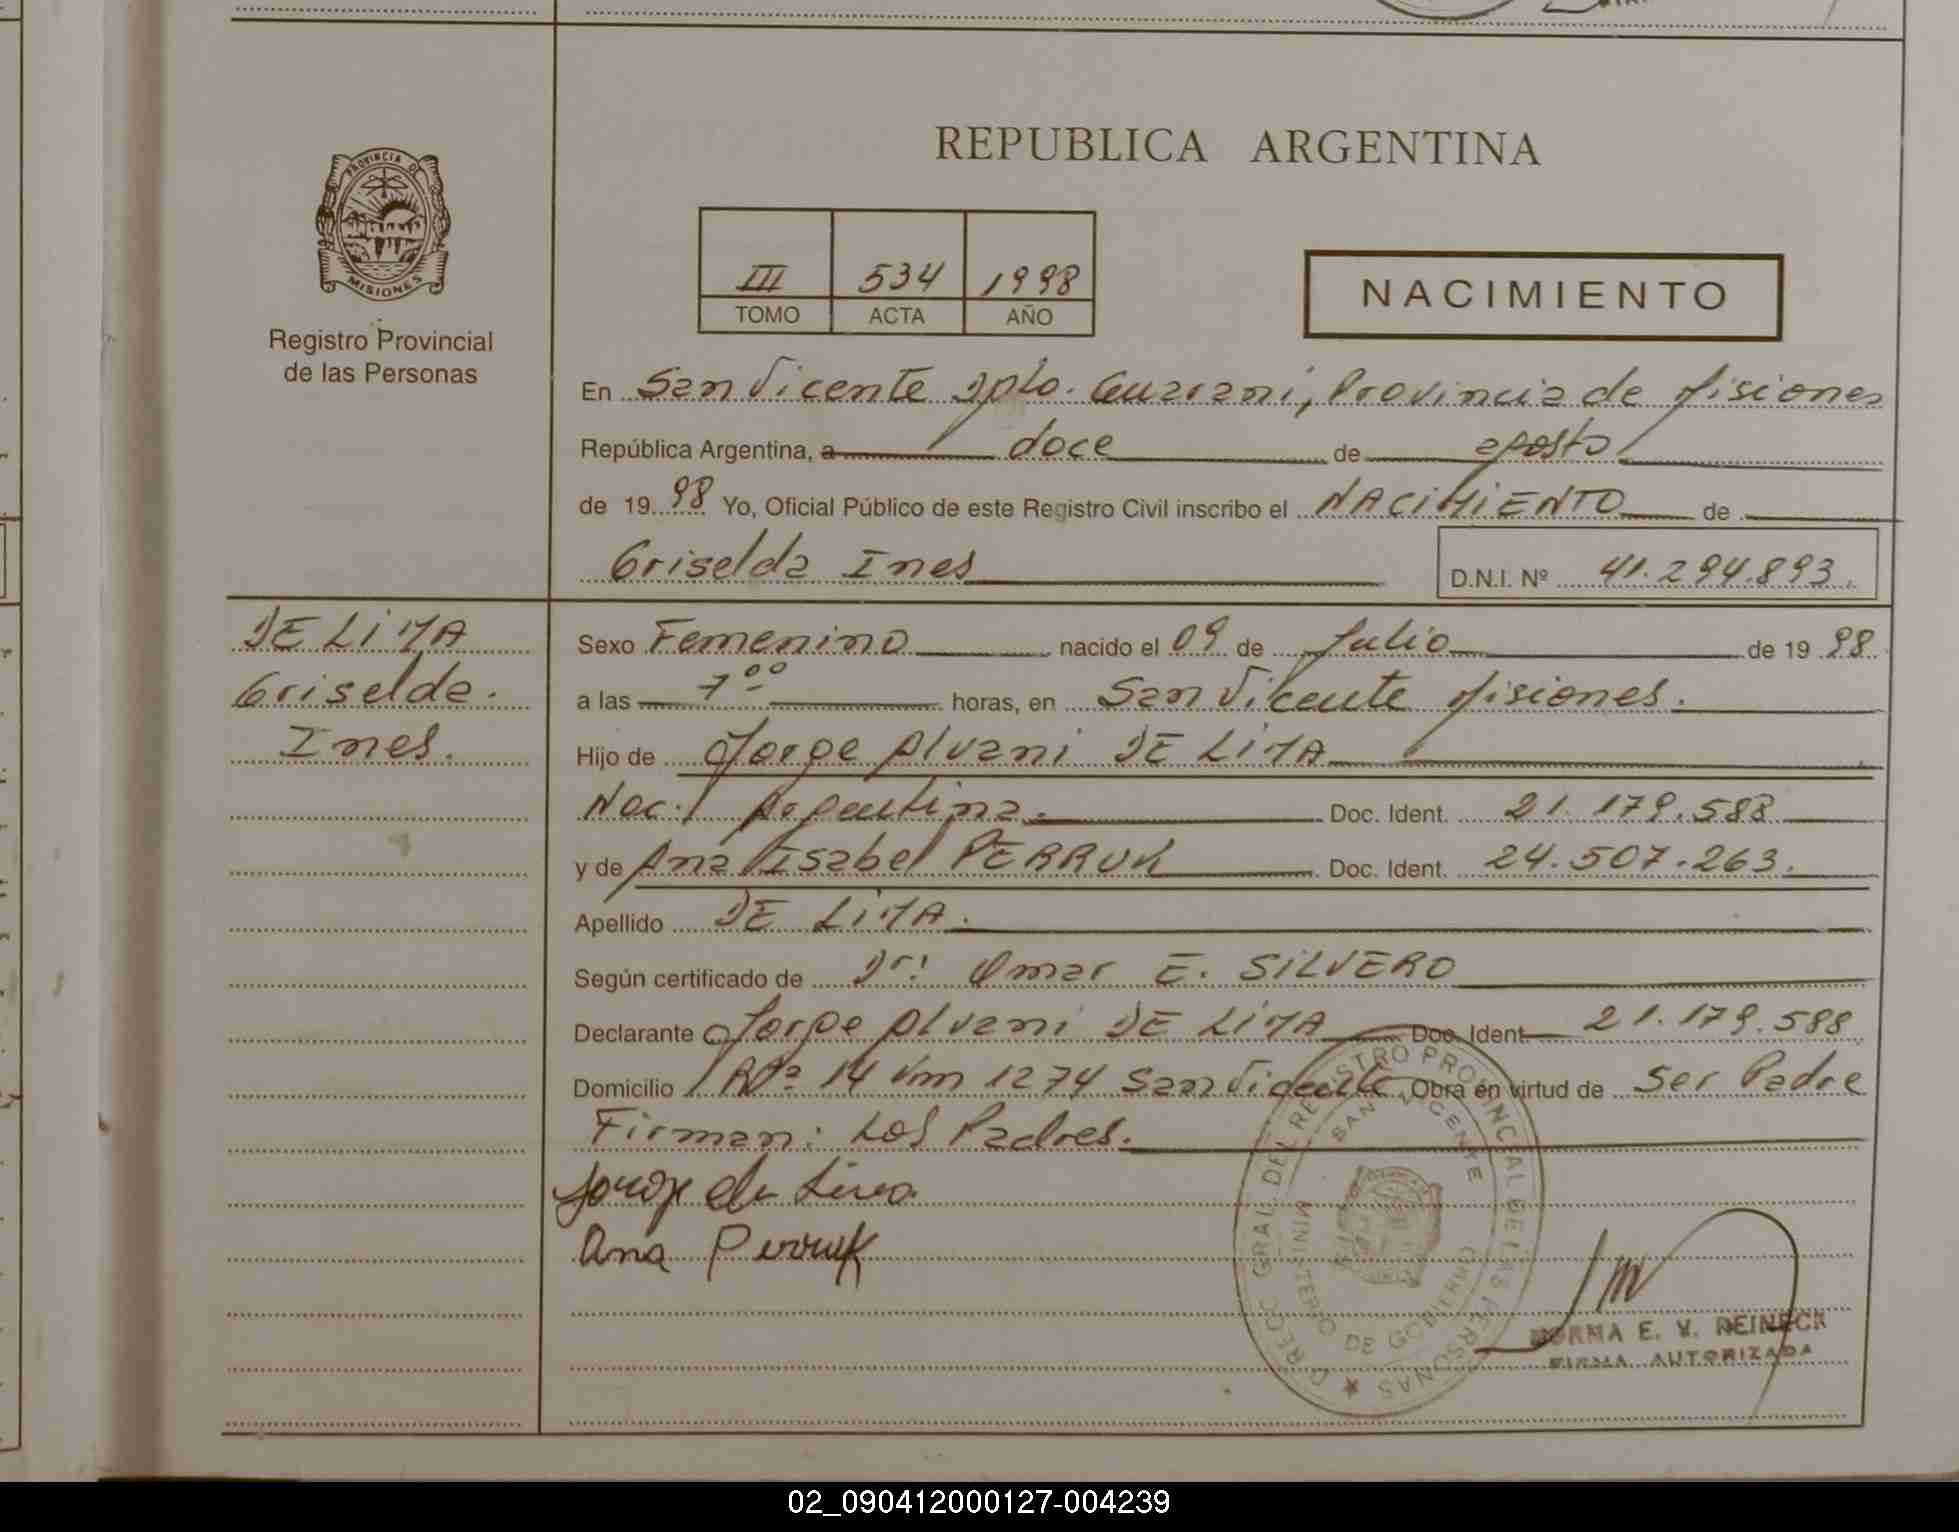 PROVINCIA DE
MISIONES
Registro Provincial
de las Personas
REPUBLICA ARGENTINA
III 534 1998
TOMO ACTA AÑO
NACIMIENTO
En San Vicente Dpto. Guarani, Provincia de Misiones
República Argentina, a doce de agosto
de 1998 Yo, Oficial Público de este Registro Civil inscribo el NACIMIENTO de
Griselda Ines D.N.I. Nº 41.294.893.
DE LIMA
Griselda.
Ines.
Sexo Femenino nacido el 09 de Julio de 1998.
a las 7⁰⁰ horas, en San Vicente Misiones.
Hijo de Jorge Alvani DE LIMA
Nac. Argentina. Doc. Ident. 21.179.588
y de Ana Isabel PERRUK Doc. Ident. 24.507.263.
Apellido DE LIMA.
Según certificado de Dr. Omar E. SILVERO
Declarante Jorge Alvani DE LIMA Doc. Ident 21.179.588
Domicilio 14 Km 1274 San Vicente Obra en virtud de Ser Padre
Firman: Los Padres.
Jorge de Lima
Ana Perruk
DIRECC GRAL. DEL REGISTRO PROVINCIAL DE LAS PERSONAS
SAN VICENTE
DE GOBIERNO
NORMA E. V. REINECK
FIRMA AUTORIZADA
02_090412000127-004239